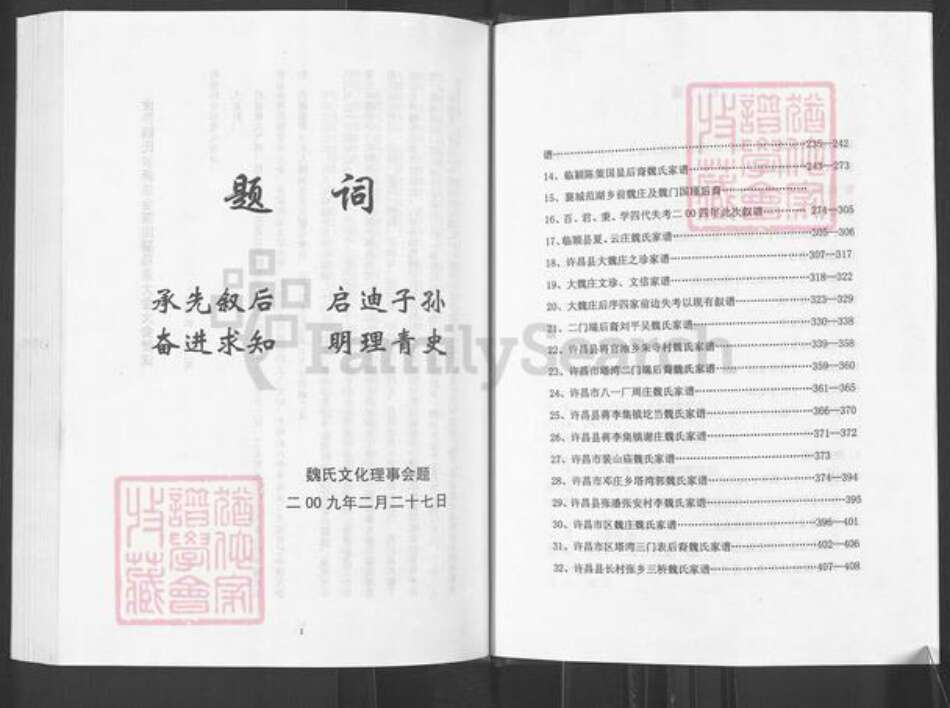 题 词
承先叙后 启迪子孙
奋进求知 明理青史
魏氏文化理事会题
二00九年二月二十七日
1
谱……235—242
14、临颍陈策国显后裔魏氏家谱……243—273
15、襄城范湖乡前魏庄及魏门国瑾后裔……
16、百、君、秉、学四代失考二00四年此次叙谱……274—305
17、临颍县夏、云庄魏氏家谱……305—306
18、许昌县大魏庄之珍家谱……307—317
19、大魏庄文珍、文信家谱……318—322
20、大魏庄后序四家前边失考以现有叙谱……323—329
21、二门瑞后裔刘平吴魏氏家谱……330—338
22、许昌县蒋官池乡朱寺村魏氏家谱……339—358
23、许昌市塔湾二门瑞后裔魏氏家谱……359—360
24、许昌市八一厂周庄魏氏家谱……361—365
25、许昌县蒋李集镇圪当魏氏家谱……366—370
26、许昌县蒋李集镇谢庄魏氏家谱……371—372
27、许昌市裴山庙魏氏家谱……373
28、许昌市邓庄乡塔湾郭魏氏家谱……374—394
29、许昌县张潘张安村李魏氏家谱……395
30、许昌市区魏庄魏氏家谱……396—401
31、许昌市区塔湾三门表后裔魏氏家谱……402—406
32、许昌县长村张乡三桥魏氏家谱……407—408
FamilySearch